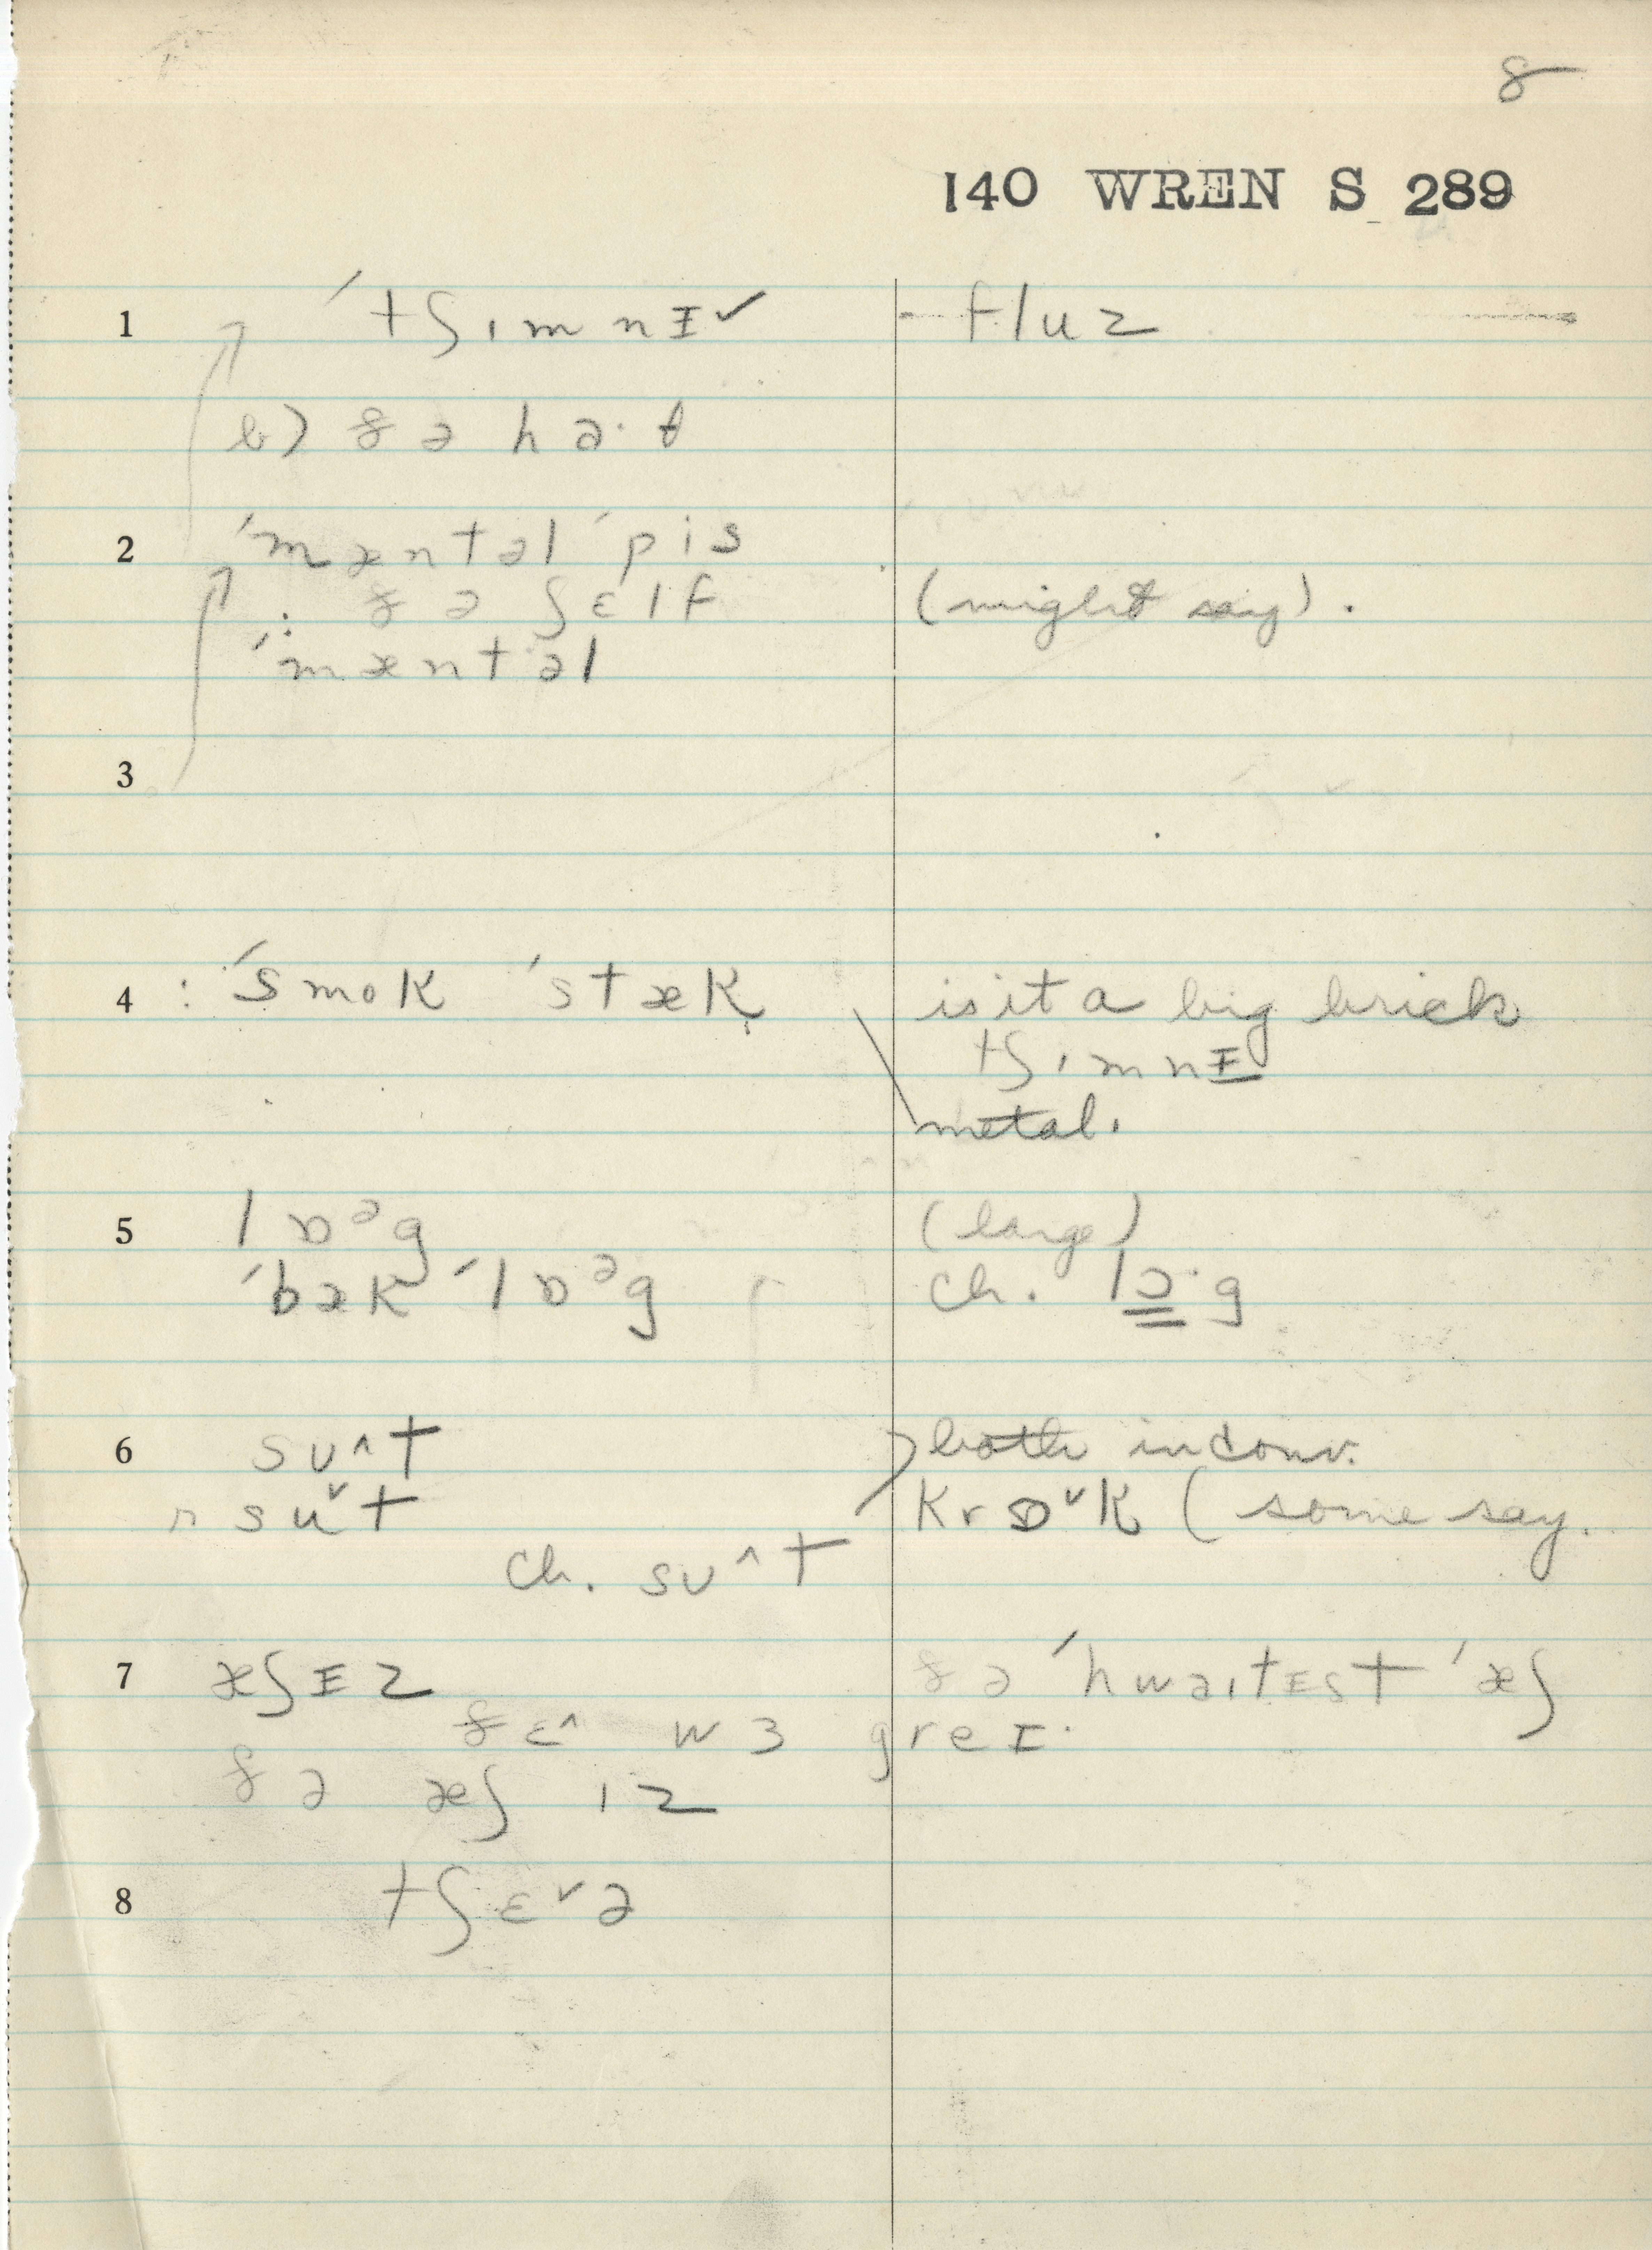 8
140 WREN S 289
1 ´tʃɪmnɪ✓ fluz
b) ðə haˑθ
2 ´mæntəl ´pis
: ðə ʃɛlf (might say).
´mæntəl
3
4 : ´smok ´stæk is it a big brick
tʃɪmnɪ
metal.
5 lɒᵊg (large)
´bæk ´lɒᵊg ch. lɔˑg
6 sʊ^t both in conv.
r suˇt krɒˇk (some say.
ch. sʊ^t
7 æʃɪz ðə ´hwaɪtɪst ´æʃ
ðɛ^ wɜ greɪˑ
ðə æʃ ɪz
8 tʃɛˇə